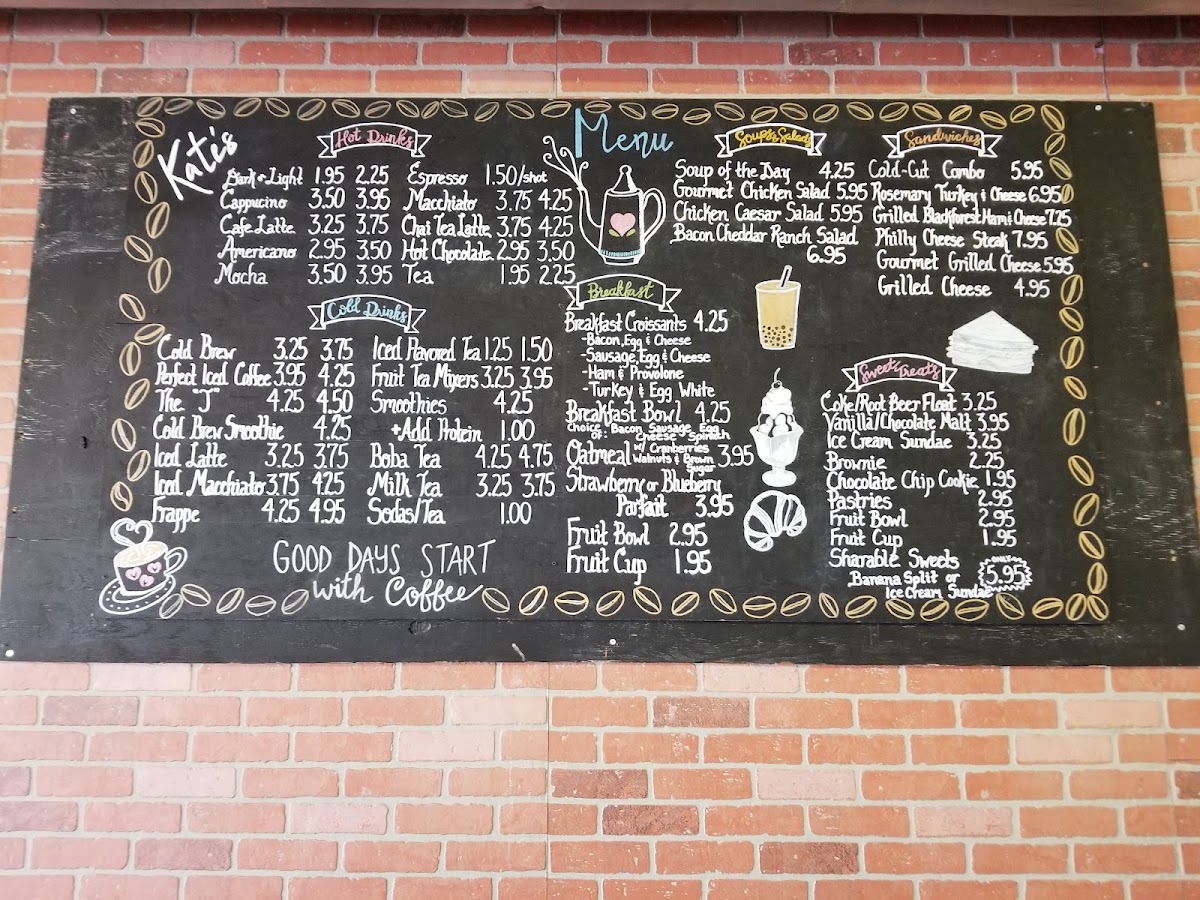 Kate's
Menu
Hot Drinks
Dark or Light 1.95 2.25
Cappucino 3.50 3.95
Cafe Latte 3.25 3.75
Americano 2.95 3.50
Mocha 3.50 3.95
Espresso 1.50/shot
Macchiato 3.75 4.25
Chai Tea Latte 3.75 4.25
Hot Chocolate 2.95 3.50
Tea 1.95 2.25
Cold Drinks
Cold Brew 3.25 3.75
Perfect Iced Coffee 3.95 4.25
The "J" 4.25 4.50
Cold Brew Smoothie 4.25
Iced Latte 3.25 3.75
Iced Macchiato 3.75 4.25
Frappe 4.25 4.95
Iced Flavored Tea 1.25 1.50
Fruit Tea Mixers 3.25 3.95
Smoothies 4.25
+Add Protein 1.00
Boba Tea 4.25 4.75
Milk Tea 3.25 3.75
Sodas/Tea 1.00
GOOD DAYS START
with Coffee
Breakfast
Breakfast Croissants 4.25
-Bacon, Egg & Cheese
-Sausage, Egg & Cheese
-Ham & Provolone
-Turkey & Egg White
Breakfast Bowl 4.25
Choice of: Bacon Sausage Egg
Cheese Spinach
Oatmeal w/ Cranberries
Walnuts & Brown
Sugar 3.95
Strawberry or Blueberry
Parfait 3.95
Fruit Bowl 2.95
Fruit Cup 1.95
Soups & Salads
Soup of the Day 4.25
Gourmet Chicken Salad 5.95
Chicken Caesar Salad 5.95
Bacon Cheddar Ranch Salad
6.95
Sandwiches
Cold-Cut Combo 5.95
Rosemary Turkey & Cheese 6.95
Grilled Blackforest Ham & Cheese 7.25
Philly Cheese Steak 7.95
Gourmet Grilled Cheese 5.95
Grilled Cheese 4.95
Sweet Treats
Coke/Root Beer Float 3.25
Vanilla/Chocolate Malt 3.95
Ice Cream Sundae 3.25
Brownie 2.25
Chocolate Chip Cookie 1.95
Pastries 2.95
Fruit Bowl 2.95
Fruit Cup 1.95
Sharable Sweets
Banana Split or
Ice Cream Sundae
ONLY
$5.95